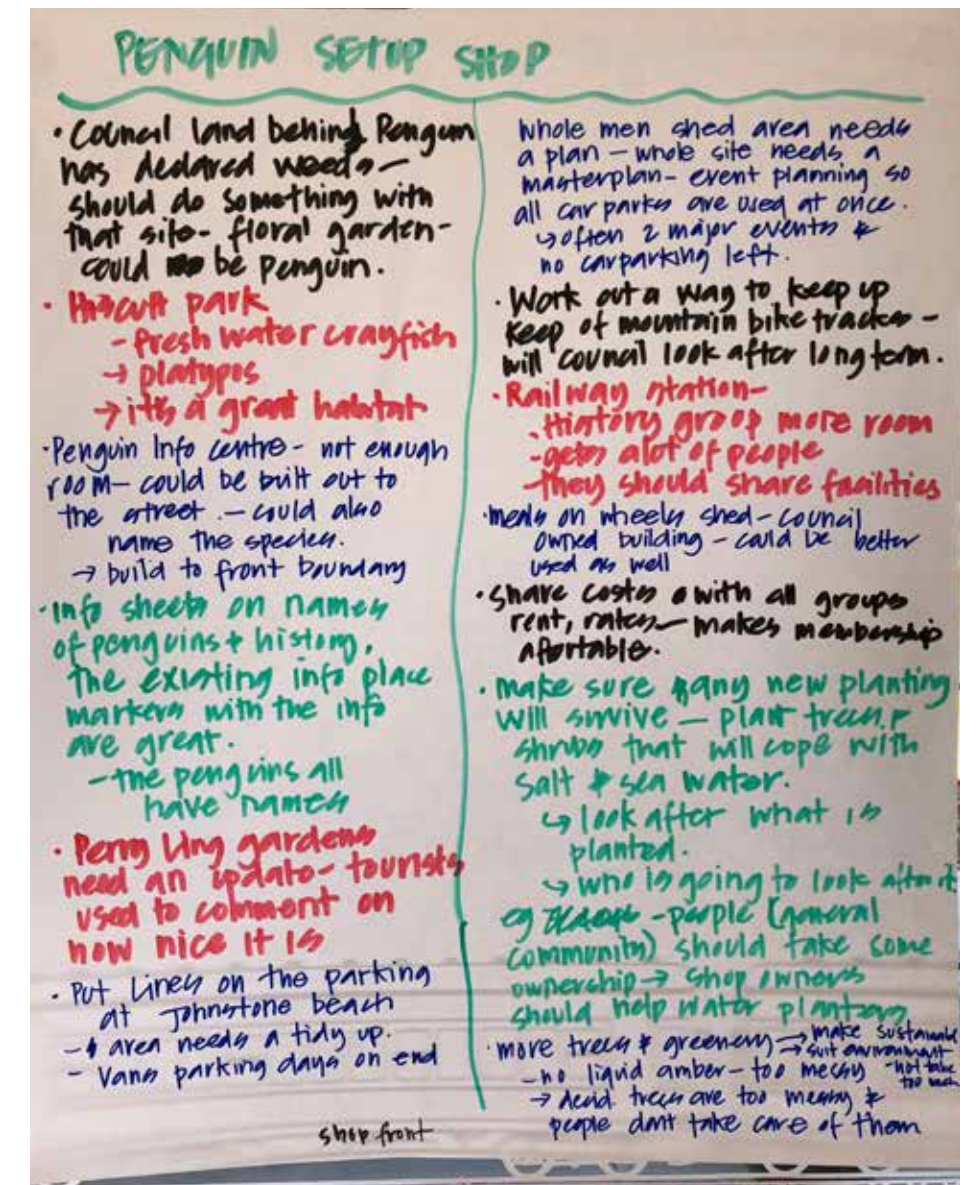 PENGUIN SETUP SHOP
• Council land behind Penguin
has declared weeds -
should do something with
that site - floral garden -
could be penguin.
• park
- fresh water crayfish
→ platypos
→ it's a great habitat
• Penguin Info centre - not enough
room - could be built out to
the street. - could also
name the species.
→ build to front boundary
• Info sheets on names
of penguins + history.
The existing info place
markers with the info
are great.
- the penguins all
have names
• Perry Ling gardens
need an update - tourists
used to comment on
how nice it is
• Put Lines on the parking
at Johnstone beach
- area needs a tidy up.
- Vans parking days on end
shop front
Whole men shed area needs
a plan - whole site needs a
masterplan - event planning so
all car parks are used at once.
↳ often 2 major events &
no carparking left.
• Work out a way to keep up
keep of mountain bike tracks -
will council look after long term.
• Railway station -
- History group more room
- gets alot of people
- they should share facilities
• meals on wheels shed - council
owned building - could be better
used as well
• Share costs with all groups
rent, rates - makes membership
afortable.
• make sure any new planting
will survive - plant trees &
shrubs that will cope with
salt & sea water.
↳ look after what is
planted.
↳ who is going to look after it
eg - people (general
community) should take some
ownership → shop owners
should help water planters
• more trees & greenery → make sustainable
→ suit environment
- not take
too much
- no liquid amber - too messy
→ decid trees are too messy &
people dont take care of them